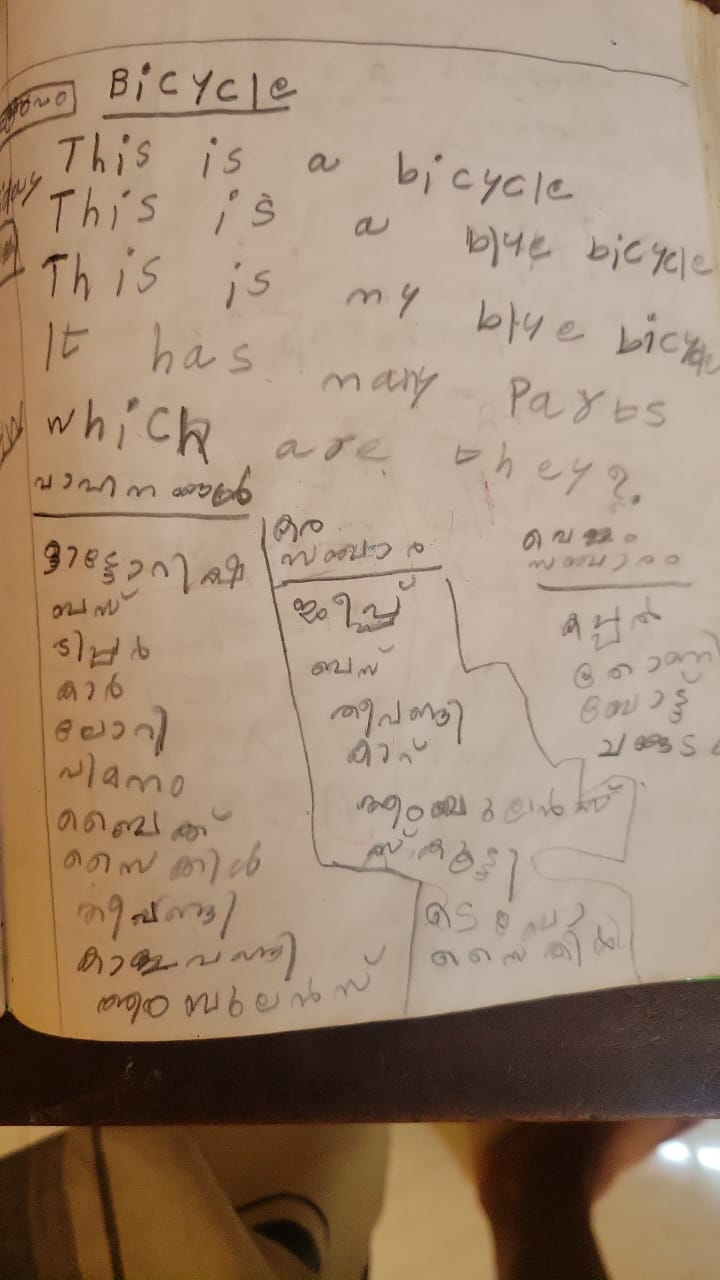 Bicycle
This is a bicycle
This is a blue bicycle
This is my blue bicycle
It has many Parts
Which are they?
വാഹനങ്ങൾ
ബസ്
ടിപ്പർ
കാർ
ലോറി
വിമനം
ബൈക്ക്
സൈകിൾ
തീവണ്ടി
കാളവണ്ടി
ആംബുലൻസ്
കര
സഞ്ചാരം
ജീപ്പ്
ബസ്
തീവണ്ടി
കാറ്
ആംബുലൻസ്
സ്കൂട്ടി
സൈകിൾ
ജല
സഞ്ചാരം
കപ്പൽ
തോണി
ബോട്ട്